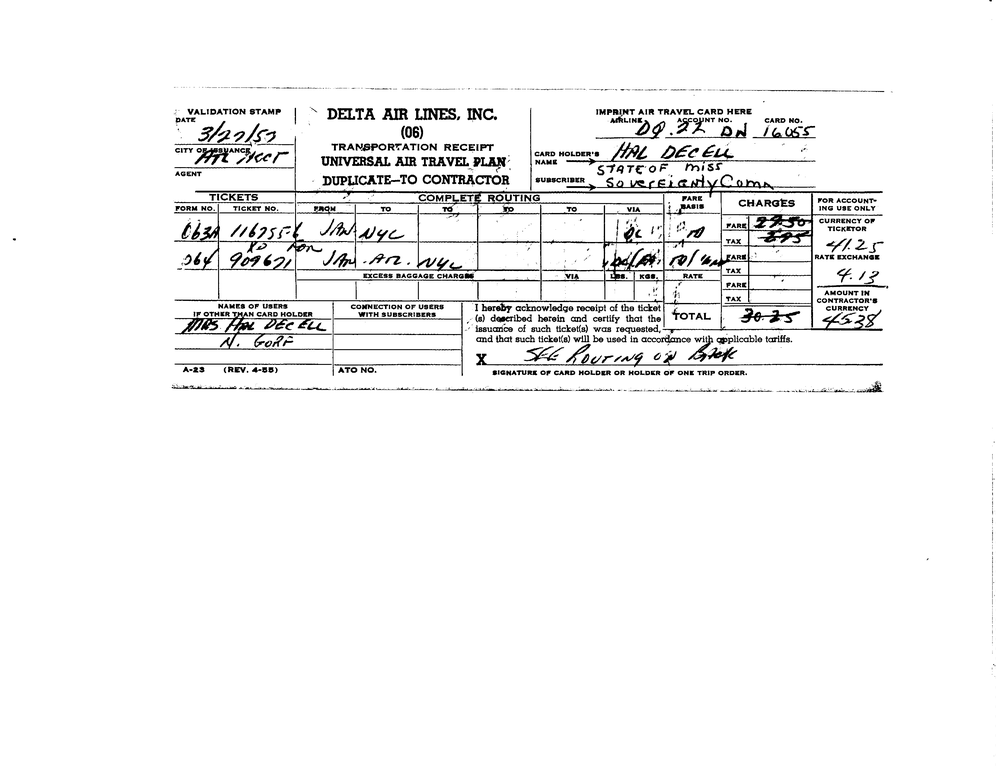 VALIDATION STAMP
DATE
3/27/57
CITY OF ISSUANCE
ATL ACCT
AGENT
DELTA AIR LINES, INC.
(06)
TRANSPORTATION RECEIPT
UNIVERSAL AIR TRAVEL PLAN
DUPLICATE—TO CONTRACTOR
IMPRINT AIR TRAVEL CARD HERE
AIRLINE ACCOUNT NO. CARD NO.
DQ. 22 DN 16055
CARD HOLDER'S NAME HAL DECELL
STATE OF MISS
SUBSCRIBER Sovereignty Comm
TICKETS COMPLETE ROUTING FARE BASIS CHARGES FOR ACCOUNTING USE ONLY
FORM NO. TICKET NO. FROM TO TO TO TO VIA
063A 116755-6 JAN NYC
FARE 27.50
TAX 2.75
CURRENCY OF TICKETOR
41.25
XD FOR
064 909671 JAN. ATL. NYC
FARE
TAX
RATE EXCHANGE
4.13
EXCESS BAGGAGE CHARGES VIA LBS. KGS. RATE
FARE
TAX
AMOUNT IN CONTRACTOR'S CURRENCY
45.38
TOTAL 30.25
NAMES OF USERS
IF OTHER THAN CARD HOLDER
MRS HAL DECELL
N. GORE
CONNECTION OF USERS
WITH SUBSCRIBERS
I hereby acknowledge receipt of the ticket
(s) described herein and certify that the
issuance of such ticket(s) was requested,
and that such ticket(s) will be used in accordance with applicable tariffs.
X SEE ROUTING ON BACK
A-23 (REV. 4-55) ATO NO. SIGNATURE OF CARD HOLDER OR HOLDER OF ONE TRIP ORDER.